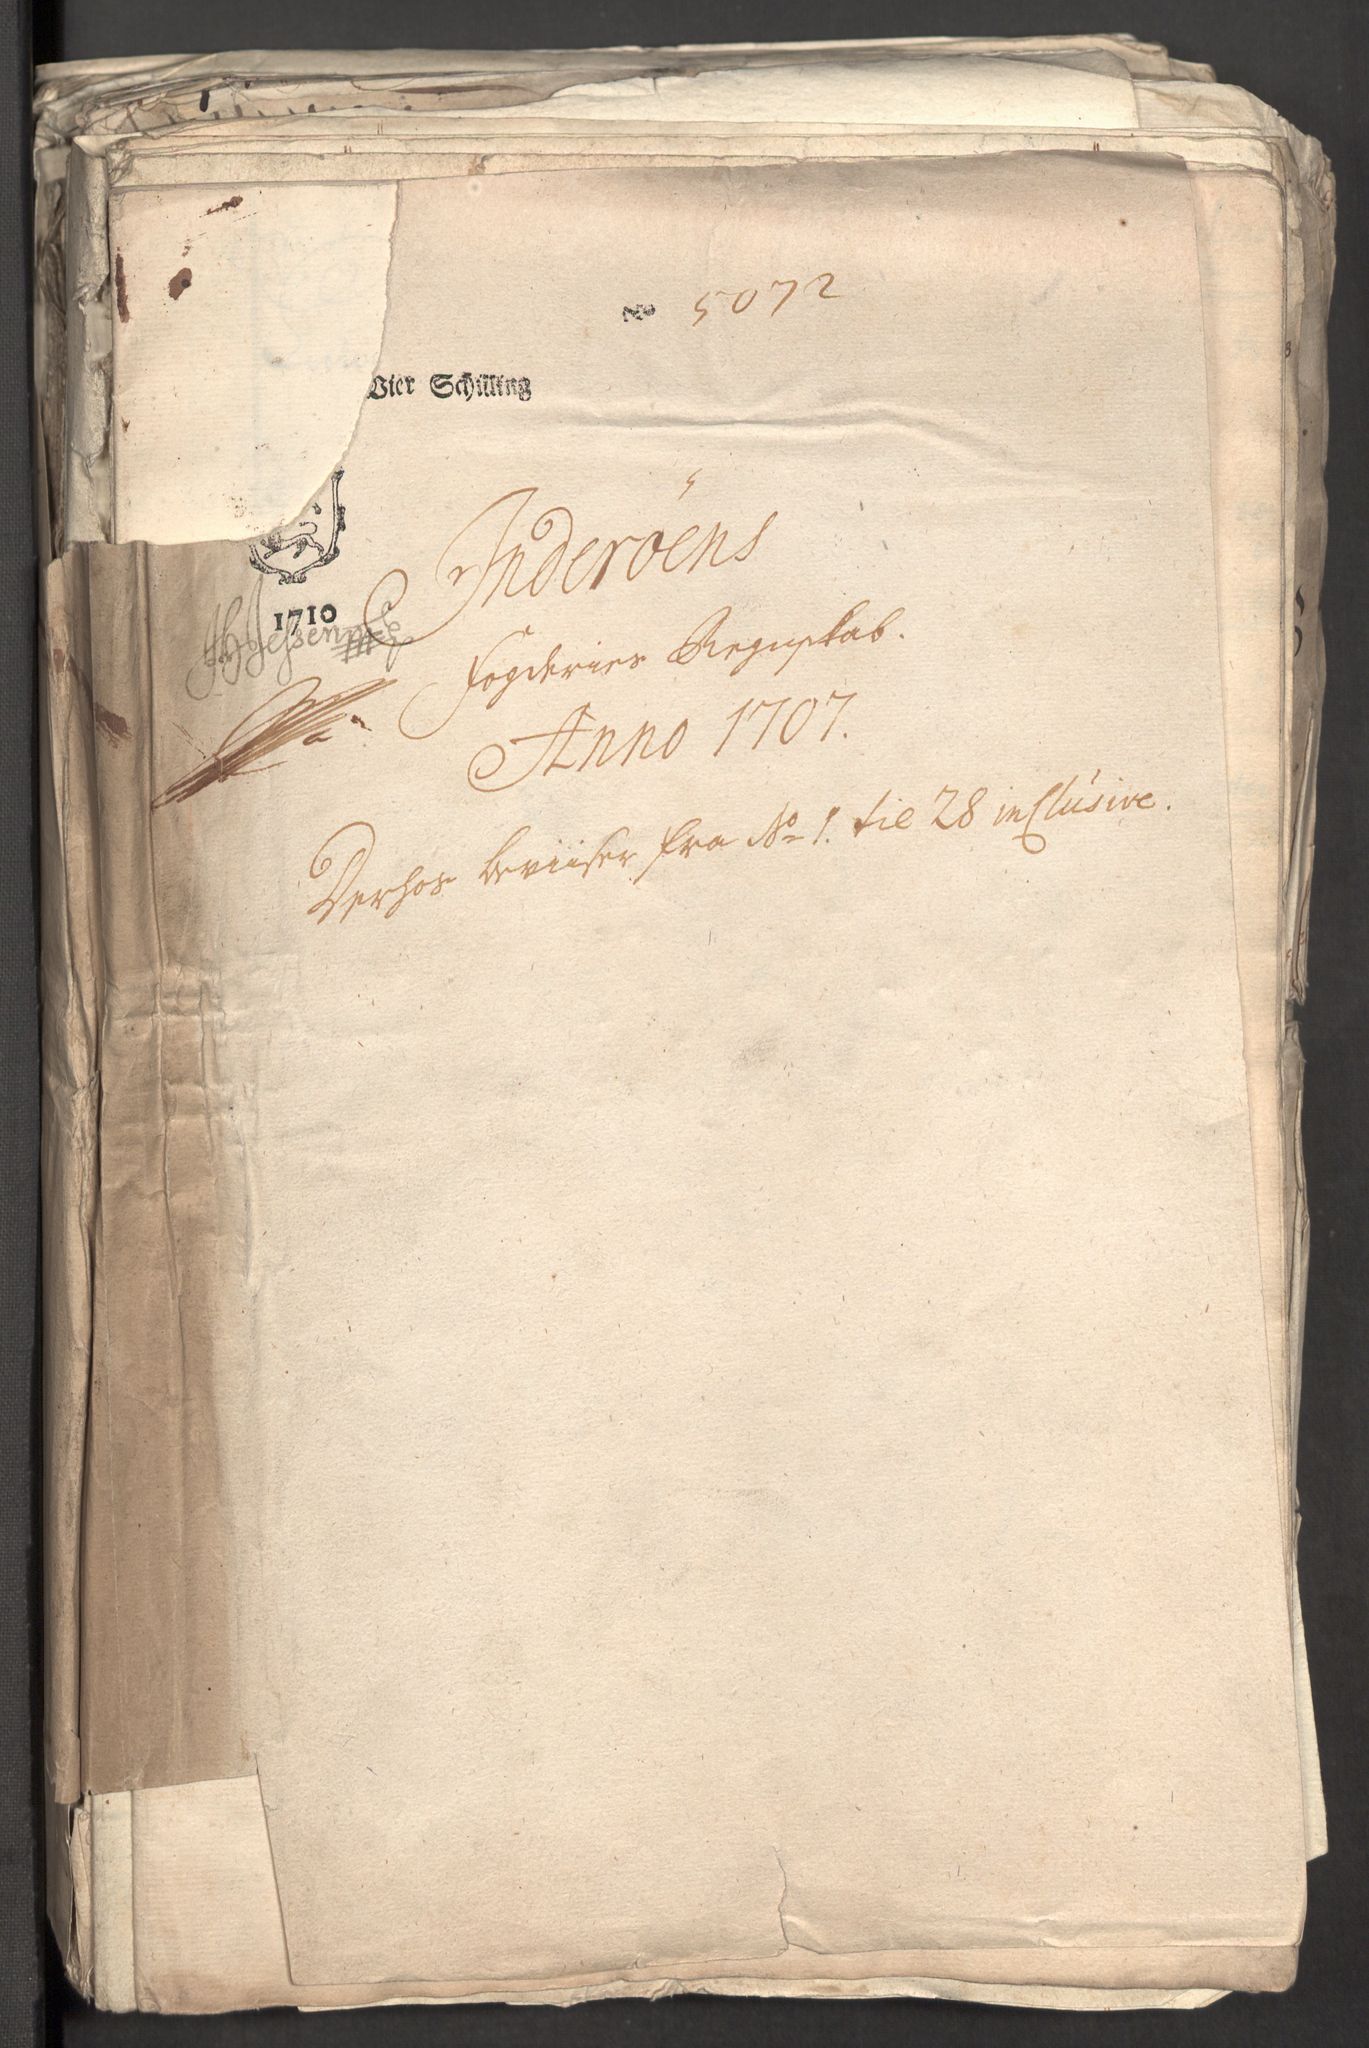 No 5072
Vier Schilling
1710
Inderöens
Fogderies Regnskab.
Anno 1707.
Derhos beviiser fra No 1. til 28 inclusive.